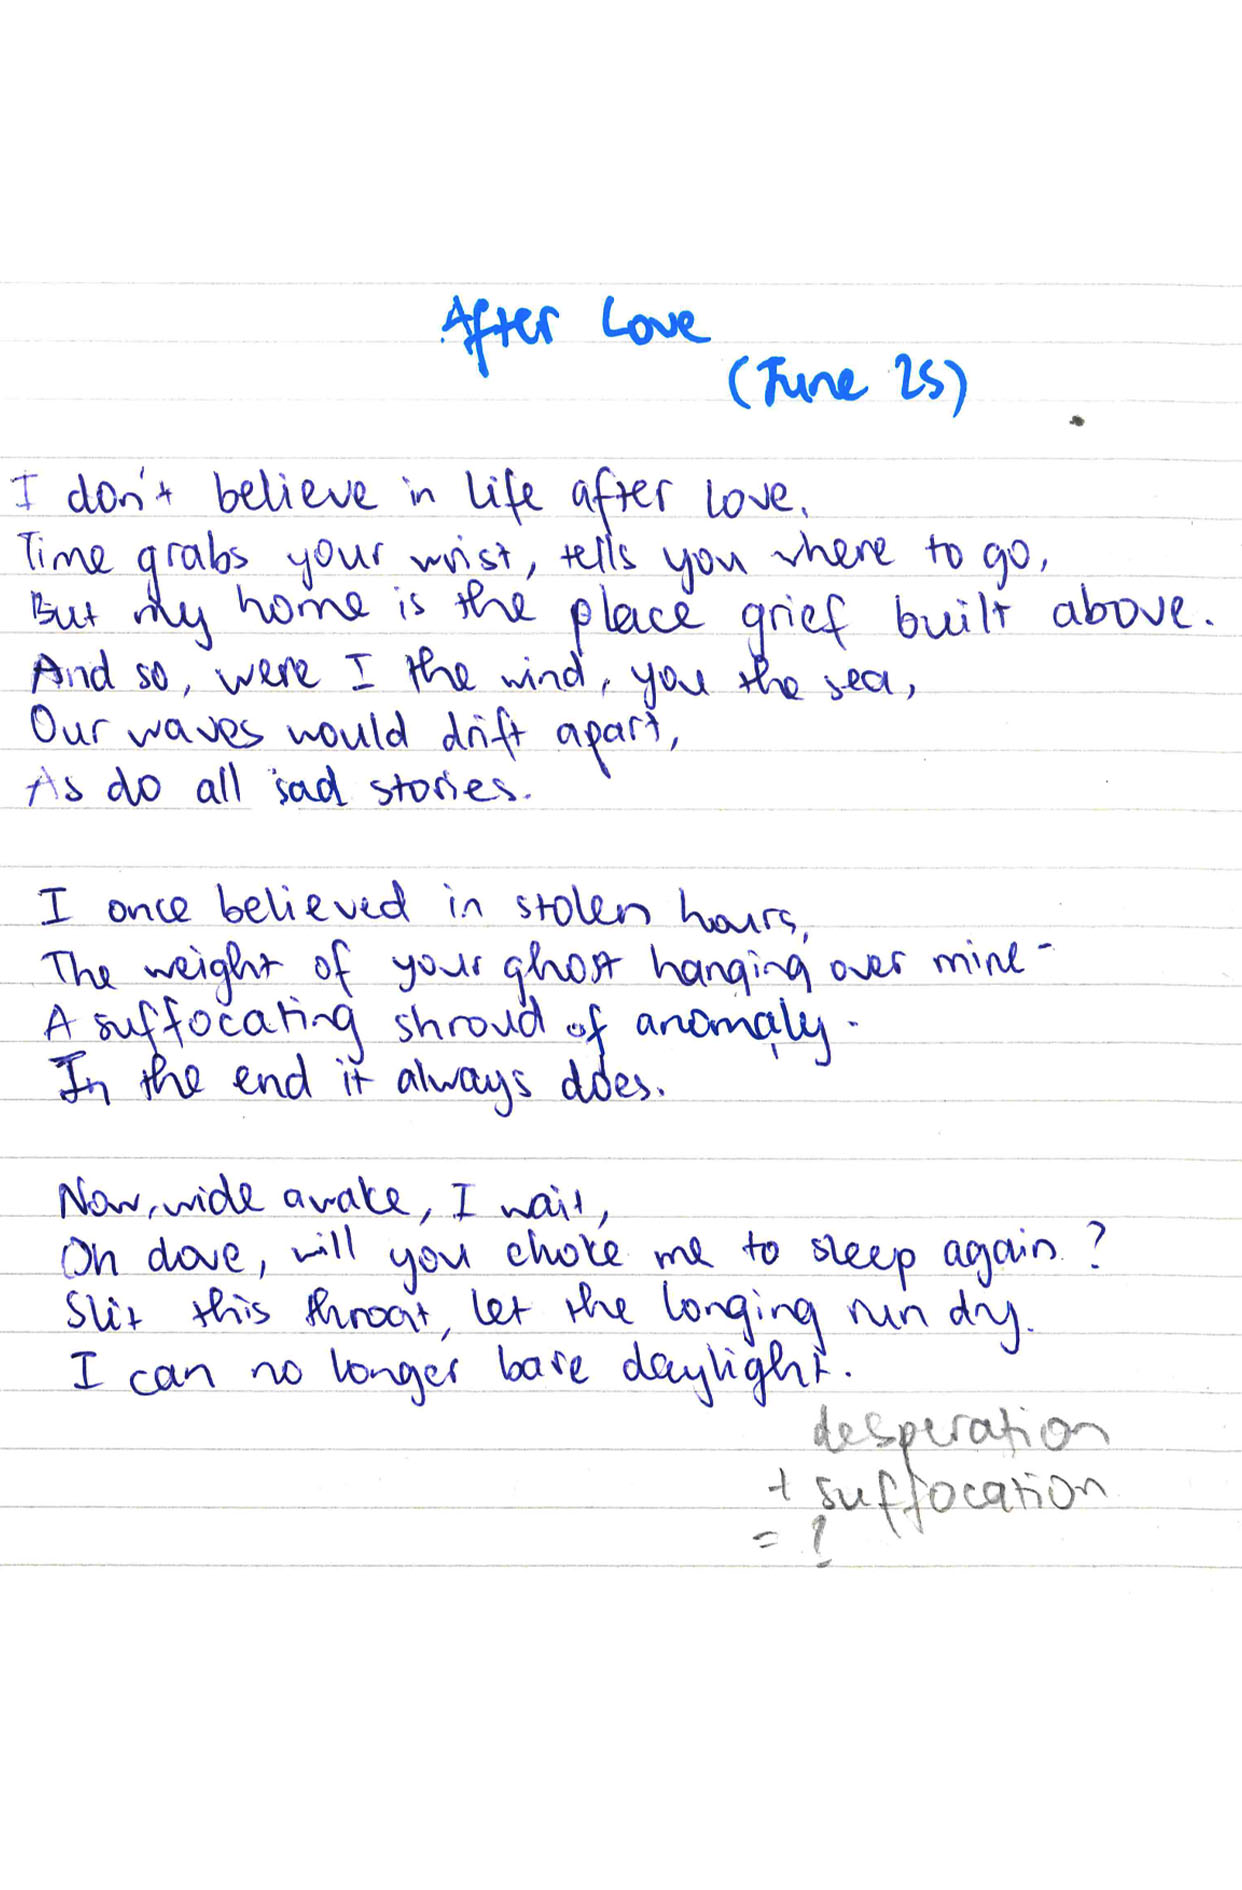 After Love
(June 25)
I don't believe in life after love.
Time grabs your wrist, tells you where to go,
But my home is the place grief built above.
And so, were I the wind, you the sea,
Our waves would drift apart,
As do all sad stories.
I once believed in stolen hours,
The weight of your ghost hanging over mine-
A suffocating shroud of anomaly.
In the end it always does.
Now, wide awake, I wait,
Oh dove, will you choke me to sleep again?
Slit this throat, let the longing run dry.
I can no longer bare daylight.
desperation
+ suffocation
= ?